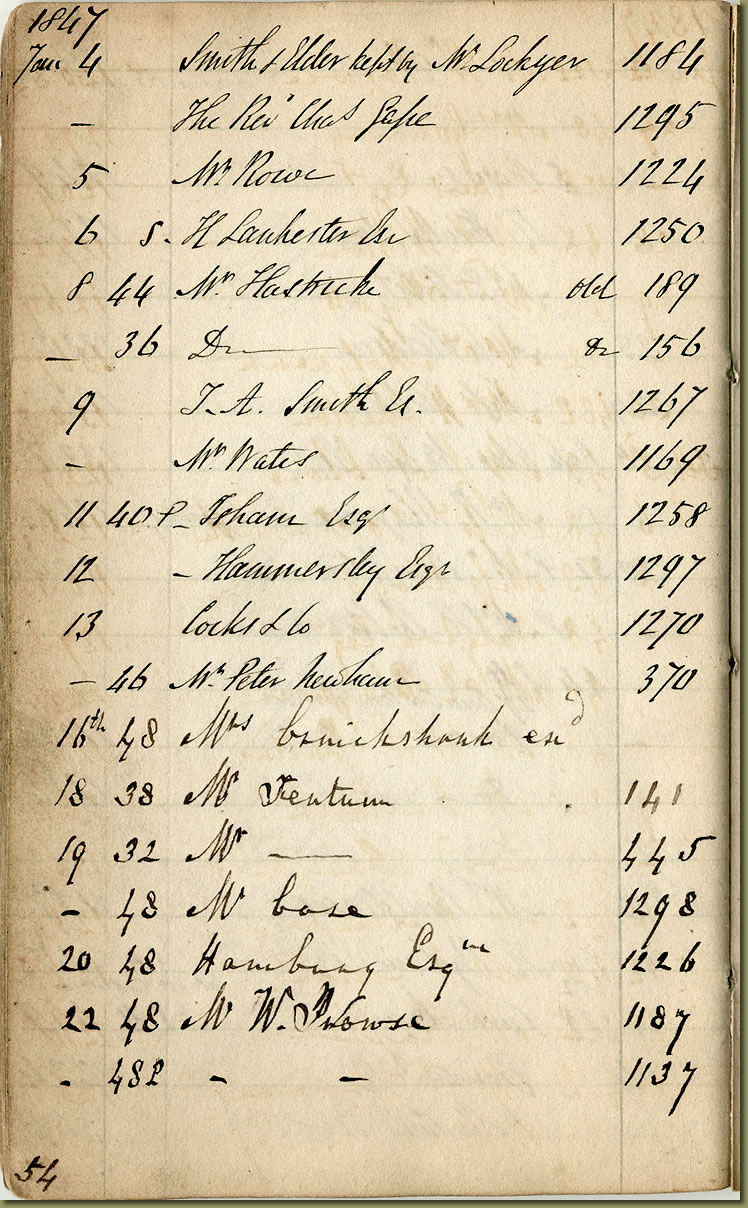 1847
Jan 4 Smith & Elder kept by Mr Lockyer 1184
— The Revd Chas Gape 1295
5 Mr Rowe 1224
6 S. H Lankester Esr 1250
8 44 Mr Hastricke old 189
— 36 Do do 156
9 T. A. Smith Es. 1267
— Mr Wates 1169
11 40 P — Isham Esqr 1258
12 — Hammersley Esqr 1297
13 Cocks & Co 1270
— 46 Mr Peter Newham 370
16th 48 Mrs Cruickshank exd
18 38 Mr Fentum 141
19 32 Mr — 445
— 48 Mr Case 1298
20 48 Hamburg Esqre 1226
22 48 Mr W. Prowse 1187
- 48 P - - 1137
54